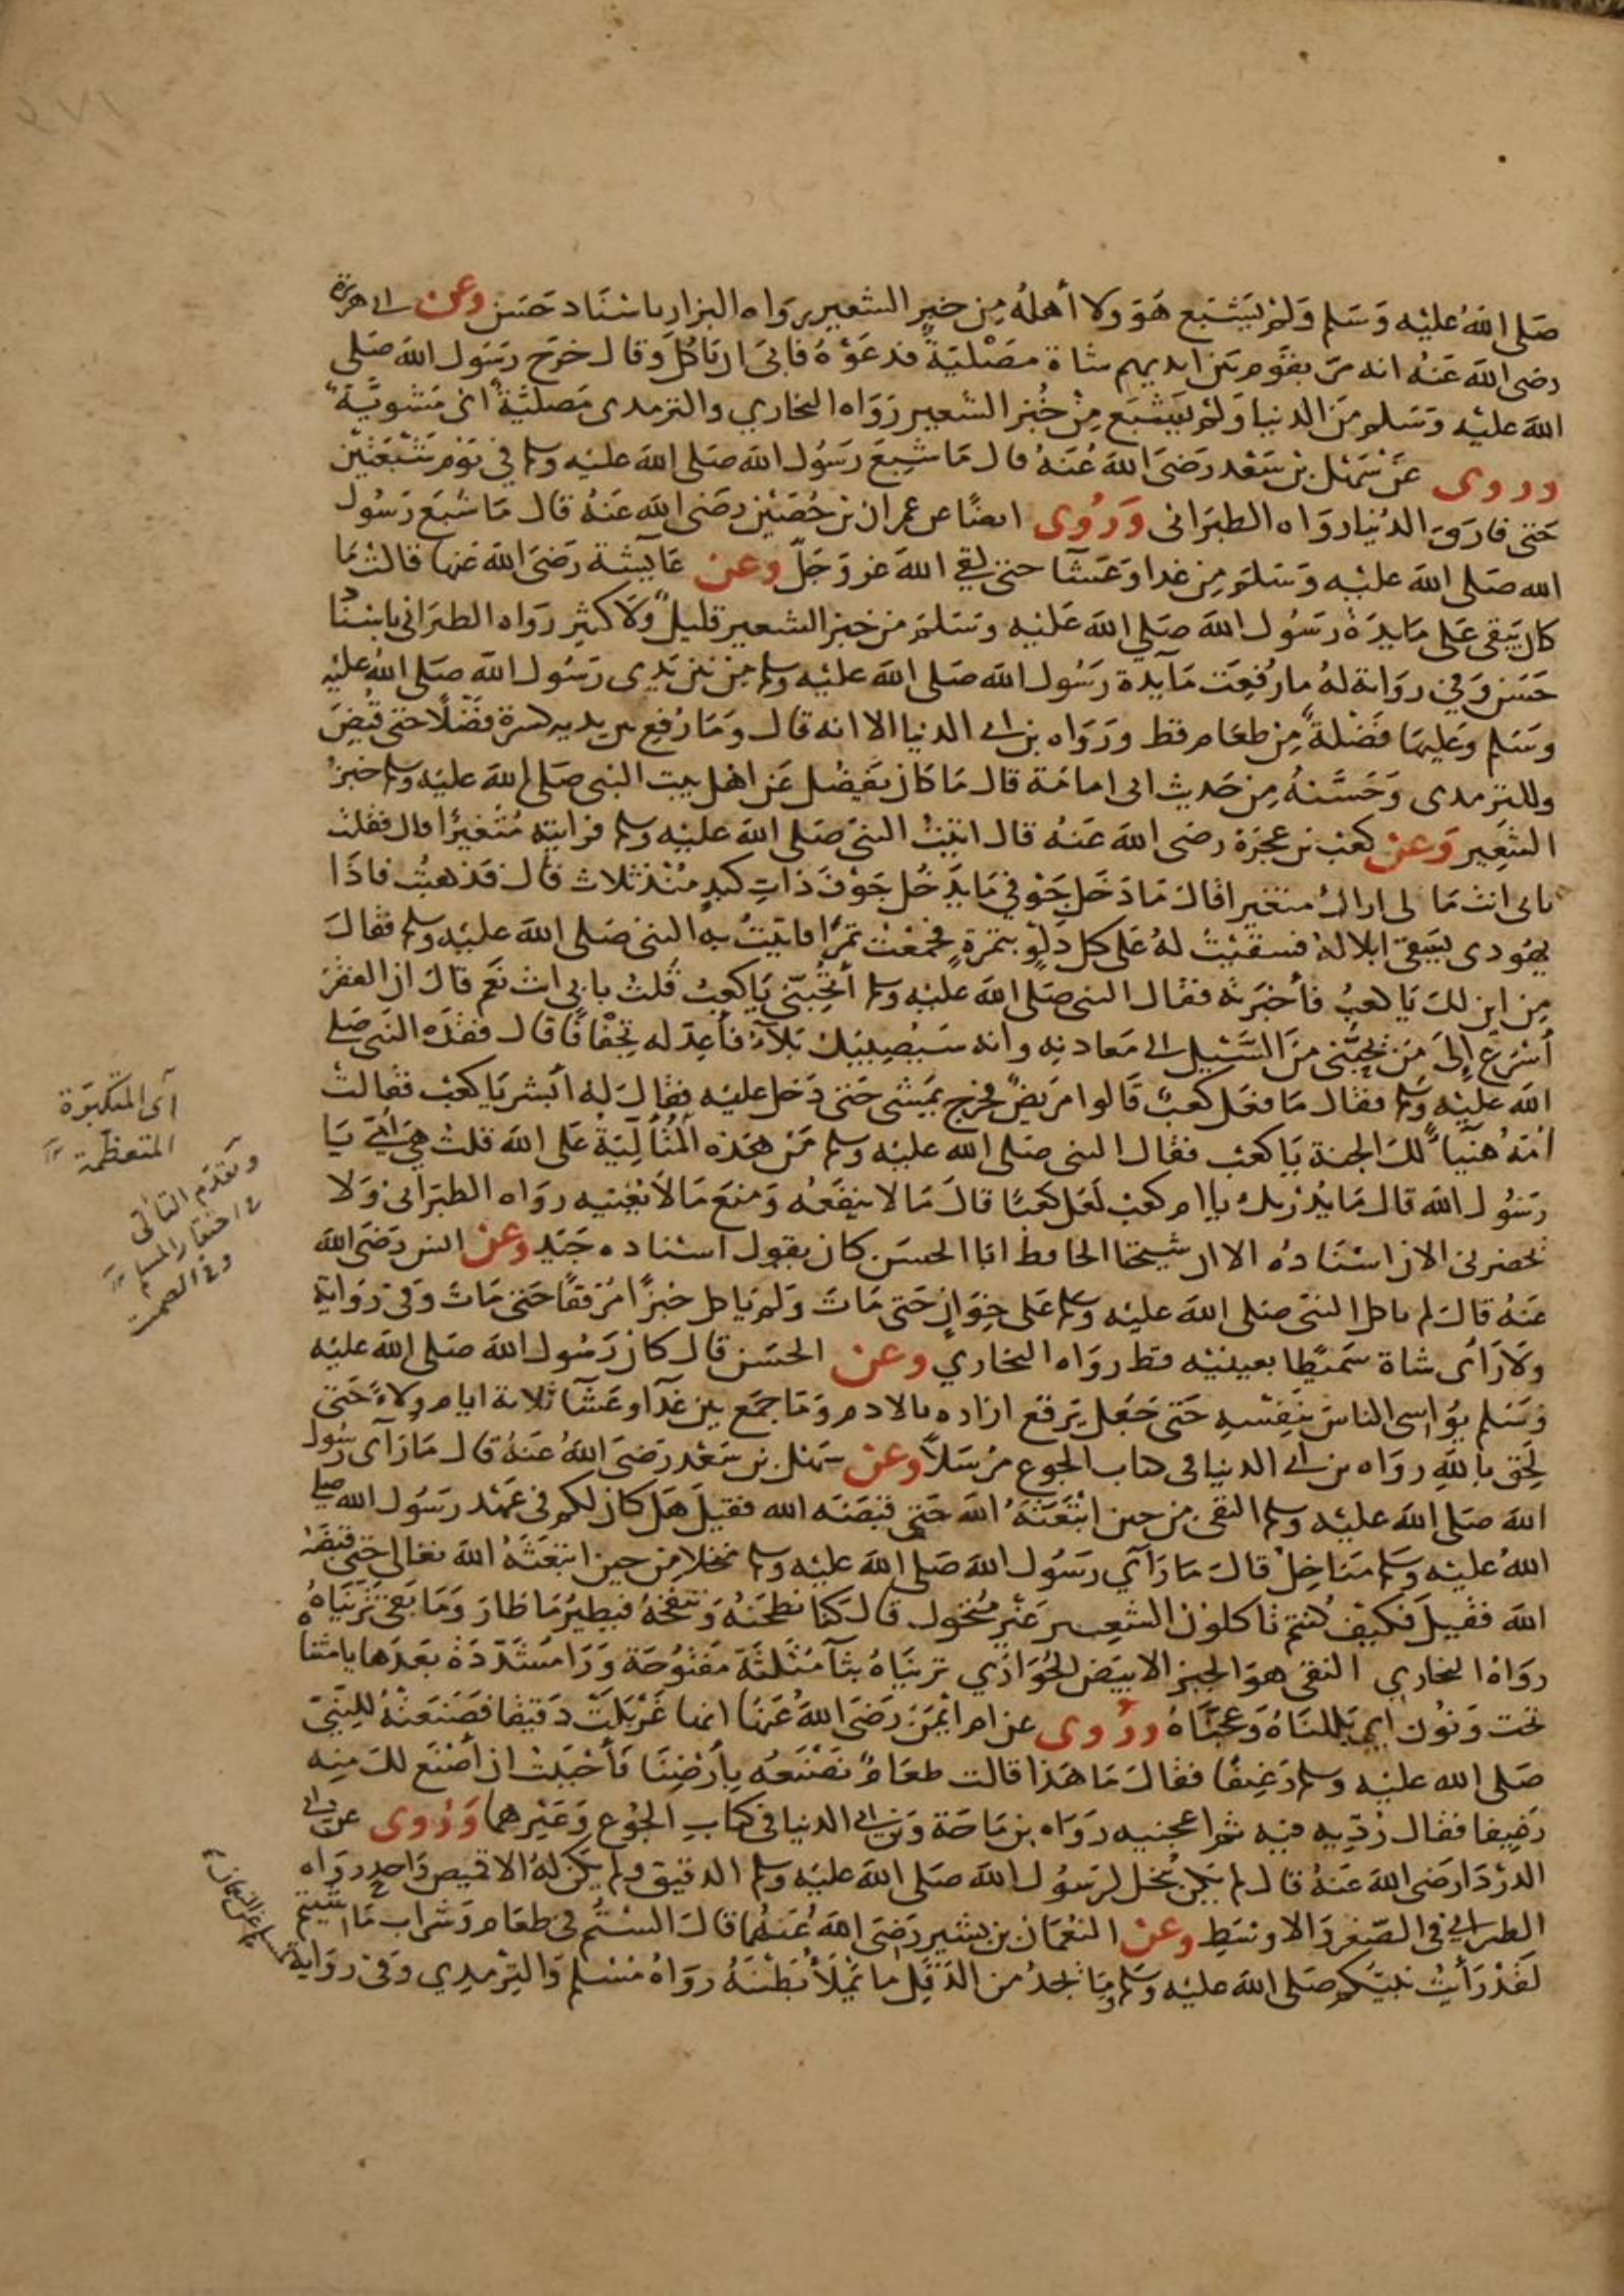 صَلى اللهُ عَليْه وَسَلم وَلمْ يَشْبَع هُوَ ولا أهلهُ مِن خبزِ الشعير رواه البزار باسْنَاد حَسَن وعن ابى هريرة
رضى اللهَ عَنْهُ انه مرّ بقوم بَين ايديهم شاة مصْليَةٌ فدعَوْهُ فابىَ ان يَاكلَ وقال خرَج رسَول اللهَ صَلى
اللهَ عليْه وَسَلم منَ الدنيا وَلمْ يشبَع مِنْ خُبْز الشعير رَوَاه البخاري والترمدى مَصْليَّة اىْ مَشويَّة
وروى عَنْ سَهْل بْن سَعْد رَضىَ اللهَ عُنَهُ قال مَا شبعَ رَسُول الله صَلى اللهَ عليْه وسلم في يَوْم شَبْعَتَيْن
حَتى فارَقَ الدُنيا رَوَاه الطبَرَانى وَرُوى ايضًا عن عمران بْن حُصَيْن رضىَ اللهَ عَنْهُ قال مَا شبَع رَسُول
الله صَلى اللهَ عليْه وَسَلم مِن غدا وَعَشَا حتى لقي اللهَ عز وَجَلّ وعن عَايشة رَضىَ اللهَ عَنها قالتْ مَا
كان يَبقى عَلى مَايدَةْ رَسُول اللهَ صَلى اللهَ عَليْه وَسَلمَ من خبز الشعير قليلٌ ولا كثير رَوَاه الطبَرَانى باسْنَاد
حَسَن وَفى رواية لهُ ما رُفعَت مَايدة رَسُول الله صَلى اللهَ عليْه وسلم مِنْ بَين يَدى رسَول اللهَ صَلى اللهُ عليْه
وسَلم وعَليهَا فَضْلةٌ مِنْ طعَام قط وَرَوَاه بن ابى الدنيا الا انه قال وَمَا رُفع من بين يديه كسرة فَضْلا حتى قُبِضَ
وللترمدى وَحَسَّنهُ مِن حَديث ابى امامَة قال مَا كان يَفضُل عَن اهْل بيت النبى صَلى اللهَ عليْه وسلم خبزُ
الشعِير وَعنْ كعْب بْن عُجْرَة رضى الله عَنهُ قال اتيْتُ النبىّ صَلى الله عليْه وسلم فرايته مُتَغيّرًا قال فقلتُ
بابى انتَ مَا لى اراكَ متغيرا قالَ مَا دَخلَ جَوْفي مَا يدْخُل جَوْفَ ذاتِ كبدٍ مُنْذ ثلاث قالَ فذهبْتُ فاذَا
يَهُودى يَسْقى ابلا لهُ فسقيْتُ لهُ عَلى كل دَلوٍ بتمَرةٍ فجمعْتُ تمْرًا فاتيْتُ به النبىَ صَلى اللهَ عليْه وسلم فقالَ
مِن اين لكَ يَا كعبُ فأخبَرته فقال النبى صَلى اللهَ عليْه وسلم أتُحِبّنى يَا كعبُ قلتُ بابى انت نعَم قالَ ان الفقْرَ
أسْرَعُ إلىَ مَنْ يُحِبُّنى مِنَ السَّيْل الى مَعادنه وانه سَيُصيبُكَ بَلَاءٌ فأعِدّ له تِجفْافًا قال ففقدَه النبى صَلى
اللهَ عليْه وسلم فقال مَا فعَل كعبٌ قَالوا مَريضٌ فخرج يَمشى حَتى دَخل عليْه فقالَ له أبشر يَا كعبُ فقالتْ
اُمُّهُ هَنيًّا لكَ الجنة يَا كعبُ فقال النبى صَلى الله عليْه وسلم مَنْ هَذه المُتَألّيَةُ عَلى اللهَ قلتُ هىَ اُمّى يَا
رسُول اللهَ قالَ مَا يُدْريك يا ام كعب لعَل كعبًا قالَ مَا لا ينفعهُ وَمنعَ مَا لا يُغْنيه رواه الطبَرَانى وَلا
يحضرنى الان اسْنَادُه الا ان شيْخنا الحافظ ابَا الحسَن كان يقول اسْناده جَيّد وعن انس رَضىَ اللهَ
عَنهُ قالَ لم ياكل النبىّ صَلى الله عليْه وسلم عَلى خِوَانٍ حَتى مَاتَ وَلمْ يَاكل خبزًا مُرَققًا حَتى مَاتَ وَفى رِوَاية
وَلا رَأى شاة سَميطًا بعينيْه قط رواه البخاري وعن الحسَن قالَ كان رَسُول اللهَ صَلى الله عليْه
وَسَلم يُوَاسى الناسَ بنَفْسِه حَتى جَعَل يَرقع ازاره بالادم وَمَا جمَع بين غدَاء وعَشَاء ثلاثة ايام ولاءً حَتى
لحِق باللهِ رواه بن ابى الدنيا فى كتاب الجوع مُرْسَلاً وعن سَهْل بن سَعْد رَضىَ اللهُ عَنهُ قال مَا رَأى رسُول
اللهَ صَلى اللهَ عليْه وسلم النقىّ من حين ابْتَعَثَهُ اللهَ حَتى قبضَه الله فقيلَ هَل كان لكم فى عَهْد رَسُول الله صلى
اللهُ عليْه وسلم مَنَاخِلُ قالَ مَا رَأى رسَول اللهَ صَلى اللهَ عليْه وسلم مُنخلا من حين ابتعثَهُ اللهَ تعالى حتى قبضَهُ
اللهَ فقيلَ فكيْفَ كُنتم تَاكلونَ الشعير غَيْر مُنْخول قالَ كنا نطْحَنهُ وَنَنفخهُ فيَطيُر مَا طَارَ وَمَا بَقىَ ثَرّيْنَاهُ
رواهُ البخاري النقى هوَ الخبز الابيَض الحُوَّارَي ثريْنَاهُ بثآ مُثَلثَة مَفْتُوحَة وَرَا مُشَدّدَة بَعْدَها يا مثناه
تحت وَنوُن أي بَلَلناهُ وَعجنَّاهُ ورُوى عن ام ايْمَن رَضىَ اللهُ عَنهَا انها غَرْبَلتْ دَقيقا فصَنعَتْهُ للنَّبىّ
صَلى الله عليْه وسلم رَغيفًا فقالَ مَا هَذا قالت طعَامٌ نصْنعُه بأرْضِنَا فأحْبَبْتُ ان أصْنَع لكَ مِنه
رغيفا فقال رُدّيه فيه ثم اعجنيه رَوَاه بن ماجَة وَبن ابى الدنيا فى كتابِ الجوُع وَغيْرهما وَرُوى عن ابى
الدرْدَا رَضىَ الله عَنهُ قالَ لم يَكن يُنخل لرسُول اللهَ صَلى الله عليْه وسلم الدقيق ولم يَكن لهُ الا قميص وَاحد رَوَاه
الطبرانى فى الصّغير وَالاوسَط وعن النعْمَان بن بشير رَضىَ اللهُ عَنهُمَا قالَ السْتُم فى طعَام وَشرَاب مَا شيتم
لَقدْ رَأيْتُ نبيَّكم صَلى اللهَ عليْه وسَلم وَمَا يَجدُ من الدّقَل مَا يَمْلأ بَطْنَهُ رواهُ مُسْلم وَالتِرْمِدي وَفى رِوَاية
أى المتكبرة
المتعظمة
وتقدم التألى
فى احتقار المسلم
وفى الصمت